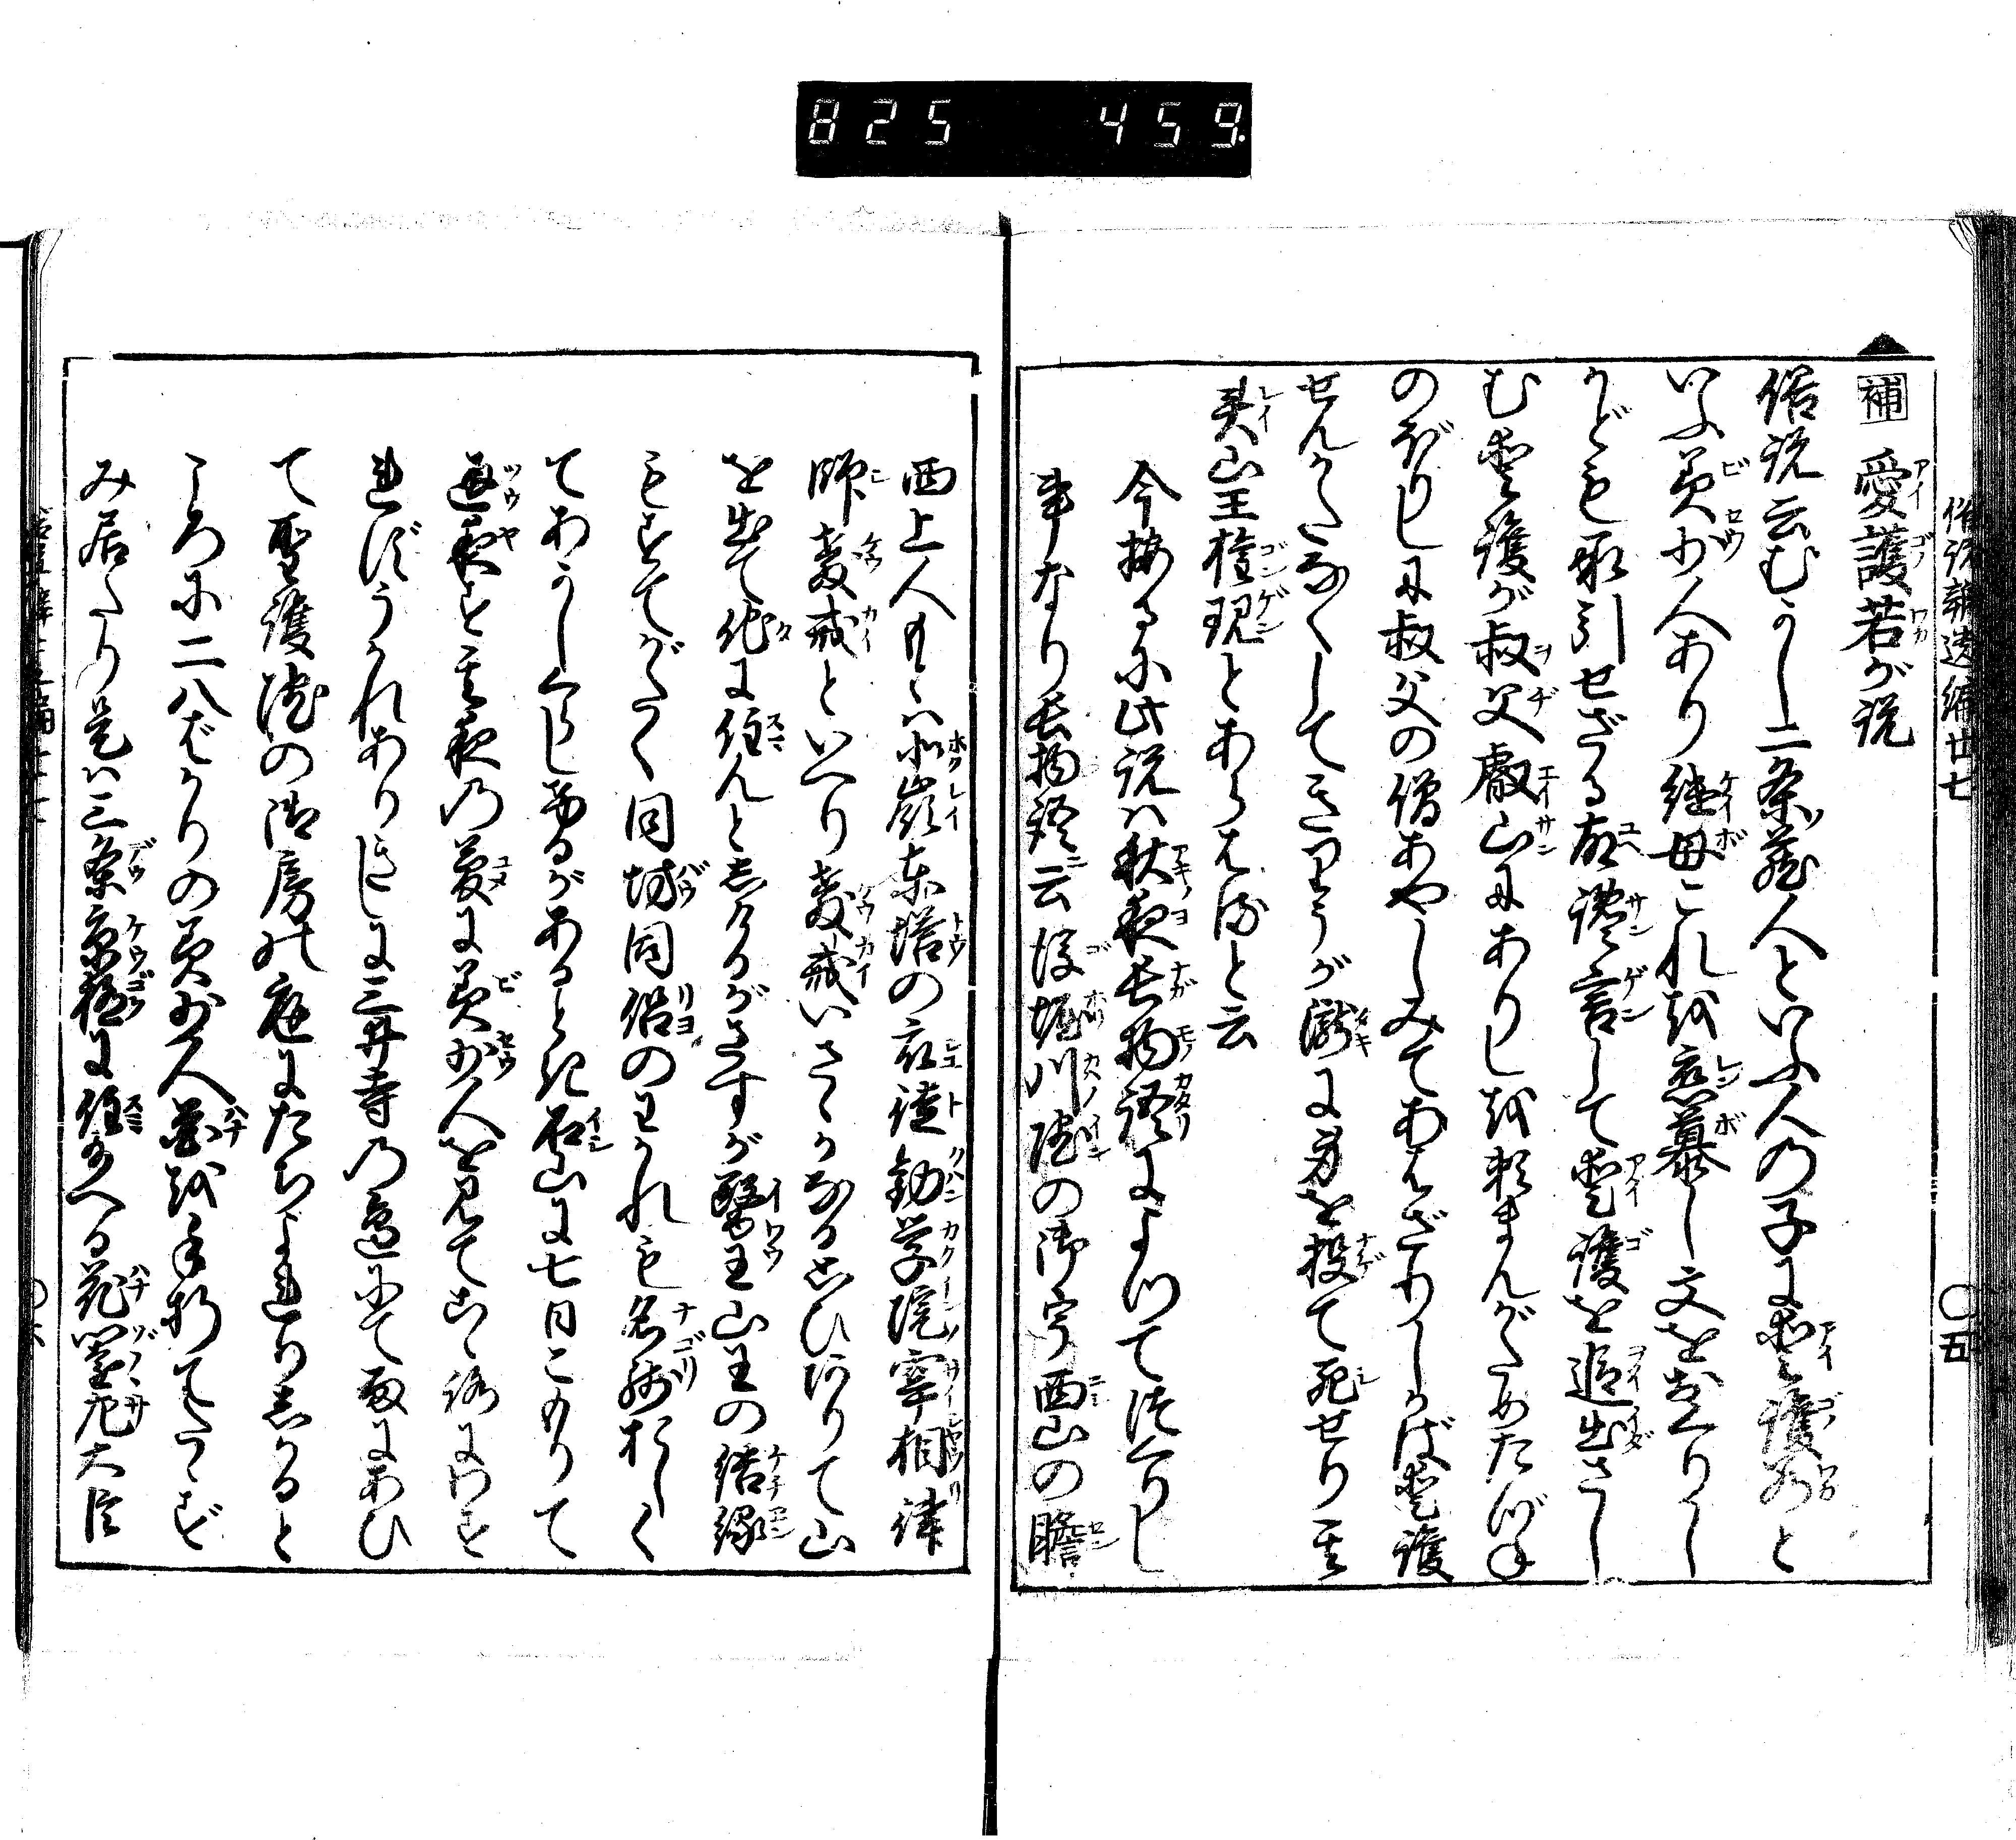 825 459
俗説辨遺編廿七
〇五
補 愛護若が説
俗説云むかし二条蔵人といふ人の子に愛護若と
いふ美少人あり継母これを恋慕し文をおくりし
かども承引せざる故讒言して愛護を追出さし
む愛護が叔父叡山にありしを頼まんがためたづね
のぼりしに叔父の僧あやしみてあはざりしかば愛護
せんかたなくしてきりうが瀧に身を投て死せり其
灵山王権現とあらはると云
今按るに此説は秋夜長物語によつて作りし
事なり長物語ニ云後堀川院の御宇西山の瞻
西上人もとは北嶺東塔の衆徒勧学院宰相律
師慶戒といへり慶戒いさゝか思ひありて山
を出て他に住んとしけるがさすが医王山王の結縁
もすてがたく同坊同侶のわかれも名残おしく
てあかしくらしけるがあるとき石山に七日こもりて
通夜す其夜の夢に美少人を見てこゝろにわす
れずうかれありきしに三井寺の邊にて雨にあひ
て聖護院の御房の庭にたちよれりしかると
ころに二八ばかりの美少人花を手折てたゝず
み居たり是は三条京極に住給へる花園左大臣